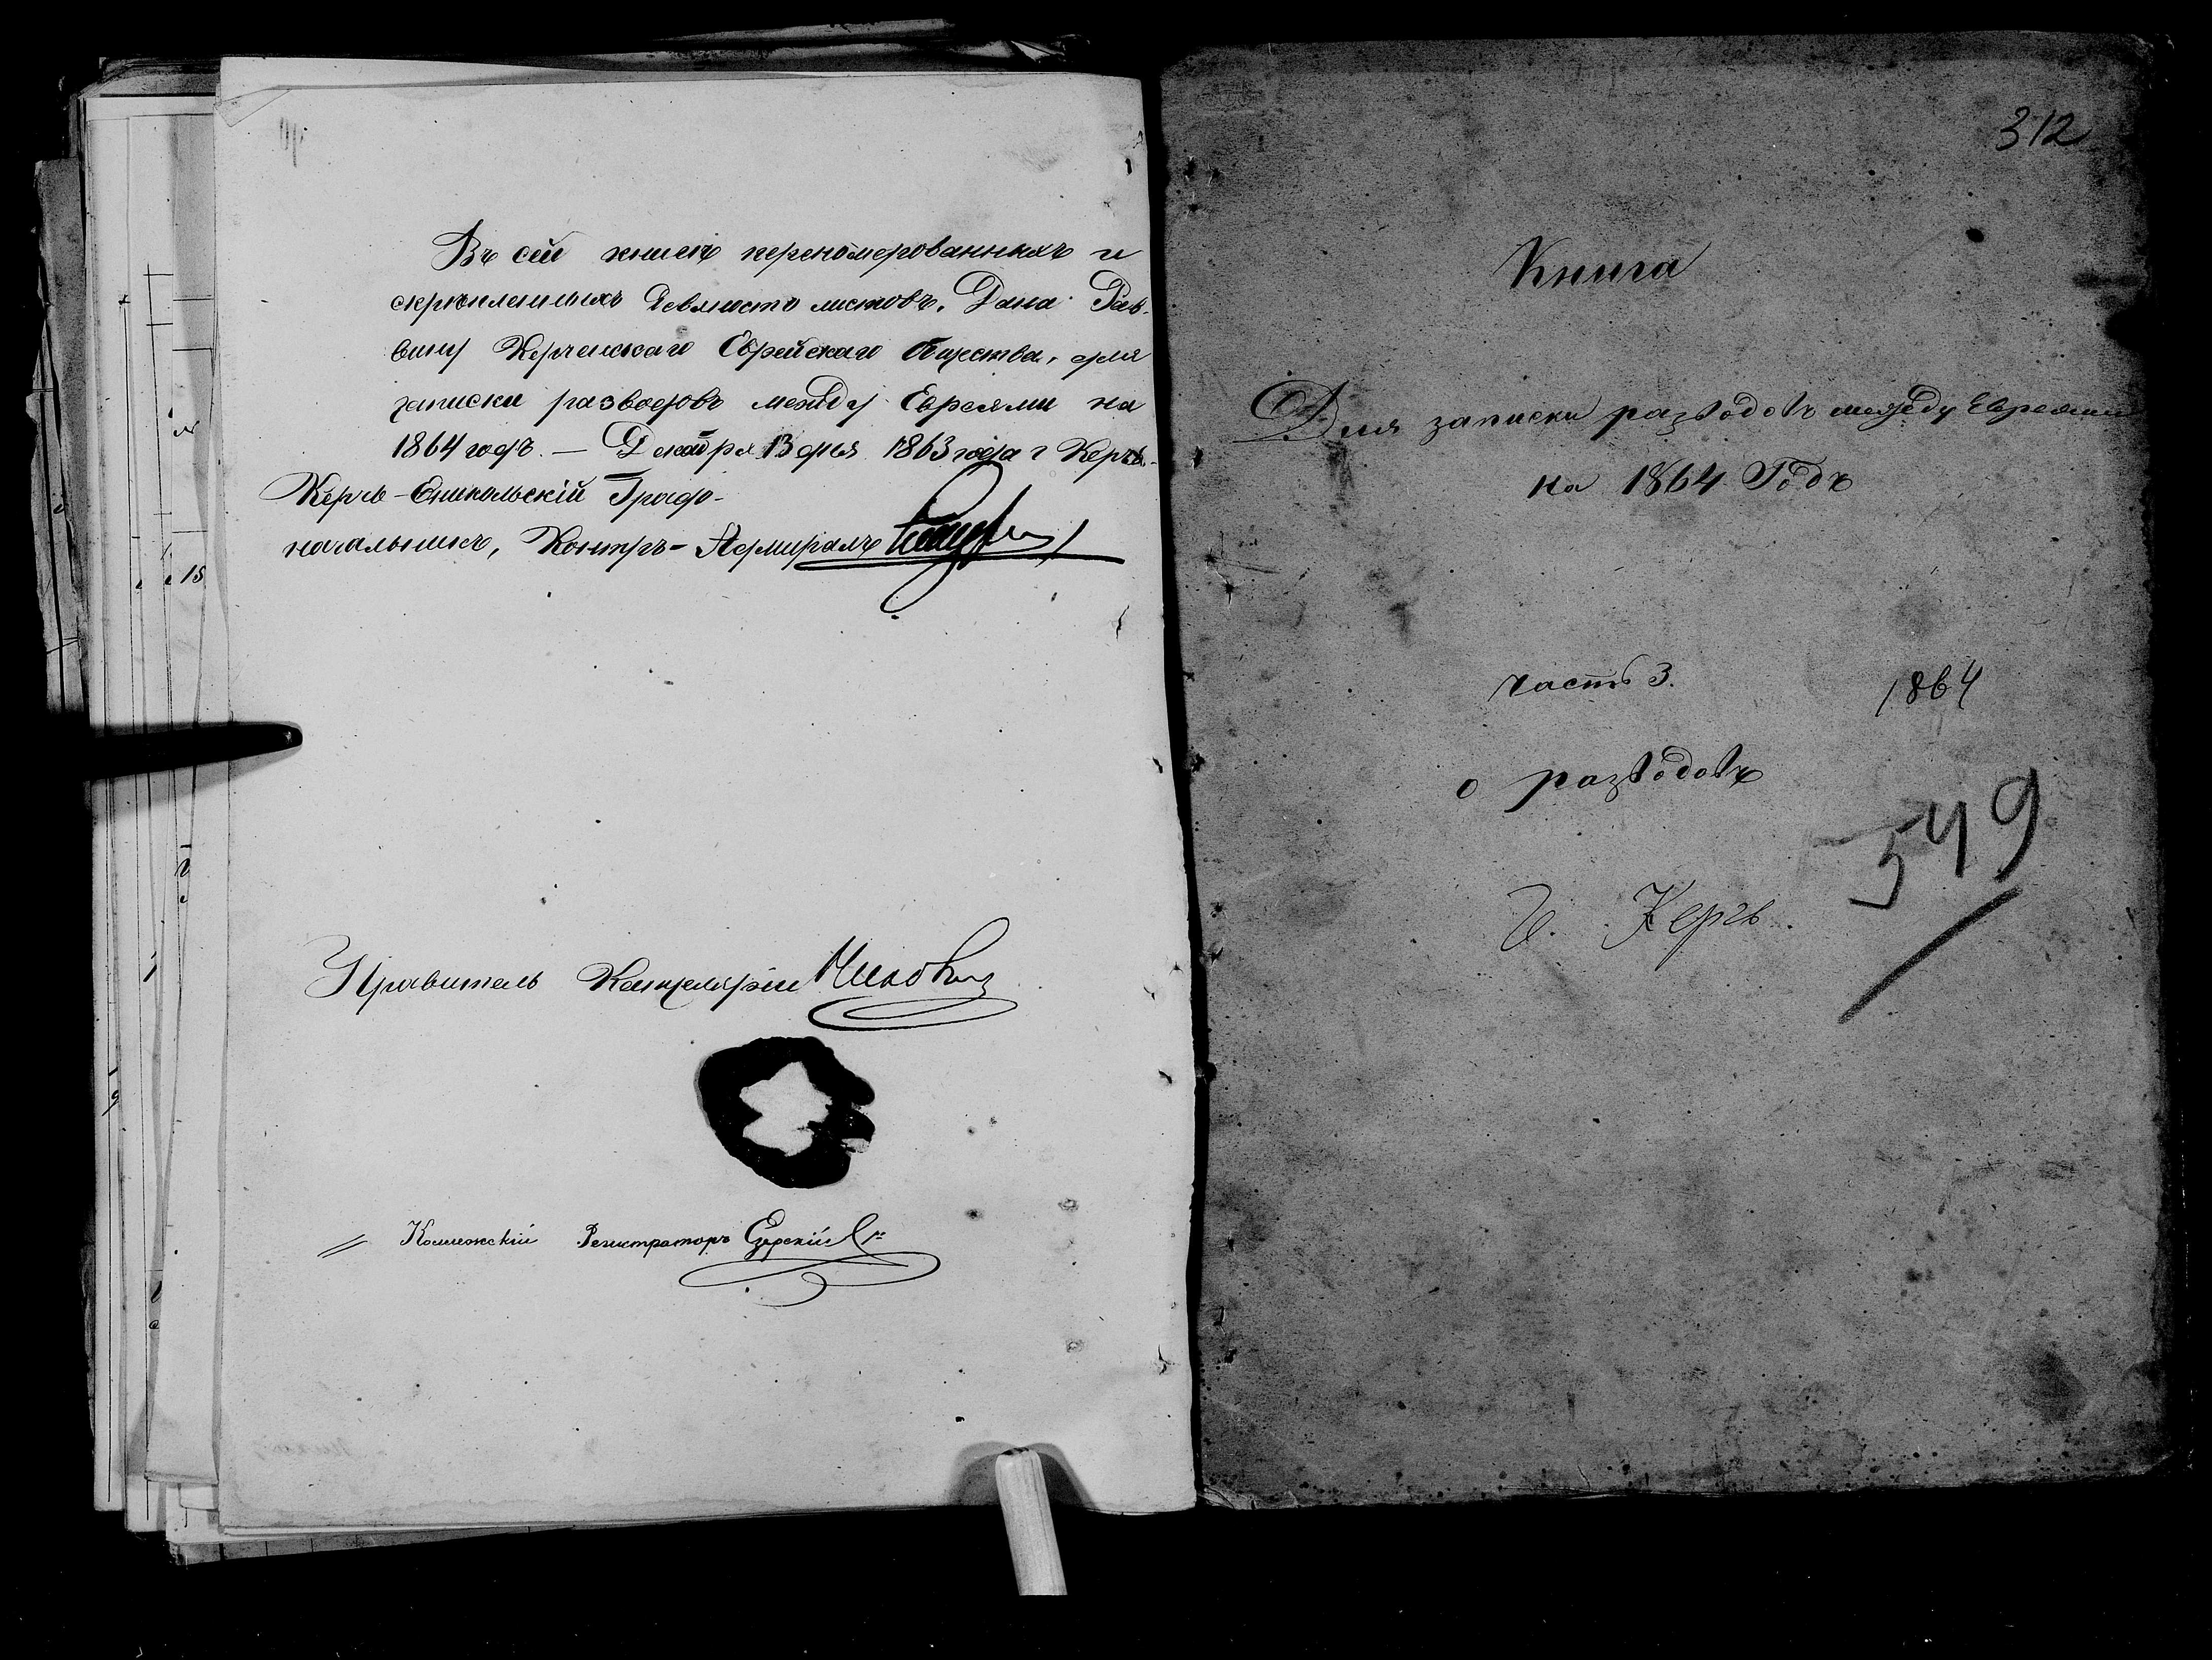 Въ сей книгѣ перенумерованныхъ и
скрѣпленныхъ девяносто листовъ. Дана Рав-
вину Керченскаго Еврейскаго Общества, для
записки разводовъ между Евреями на
1864 годъ. — Декабря 13 дня 1863 года г Керчь.
Керчь-Еникольскій Градо-
начальникъ, Контръ-Адмиралъ
Правитель Канцеляріи
Коллежскій Регистраторъ
312
Книга
Для записки разводовъ между Евреями
на 1864 Годъ
часть 3.
1864
о разводовъ
549
г. Керчь.